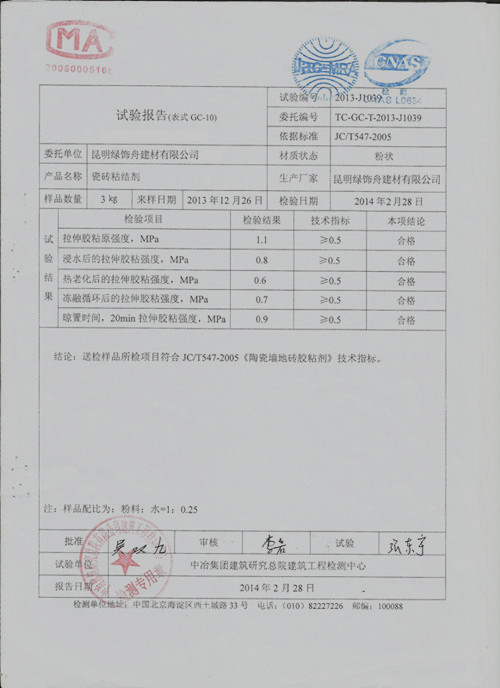 MA
2008000516
ilac-MRA
CNAS
检测
CNAS L0654
试验报告(表式 GC-10)
试验编号 2013-J1039
委托编号 TC-GC-T-2013-J1039
依据标准 JC/T547-2005
委托单位 昆明绿饰舟建材有限公司 材质状态 粉状
产品名称 瓷砖粘结剂 生产厂家 昆明绿饰舟建材有限公司
样品数量 3 kg 来样日期 2013 年 12 月 26 日 检验日期 2014 年 2 月 28 日
试验结果
检验项目 检验结果 技术指标 本项结论
拉伸胶粘原强度，MPa 1.1 ≥0.5 合格
浸水后的拉伸胶粘强度，MPa 0.8 ≥0.5 合格
热老化后的拉伸胶粘强度，MPa 0.6 ≥0.5 合格
冻融循环后的拉伸胶粘强度，MPa 0.7 ≥0.5 合格
晾置时间，20min 拉伸胶粘强度，MPa 0.9 ≥0.5 合格
结论：送检样品所检项目符合 JC/T547-2005《陶瓷墙地砖胶粘剂》技术指标。
注：样品配比为：粉料：水=1：0.25
批准 审核 试验
试验单位 中冶集团建筑研究总院建筑工程检测中心
报告日期 2014 年 2 月 28 日
检测专用章
检测单位地址：中国北京海淀区西土城路 33 号 电话：(010) 82227226 邮编：100088